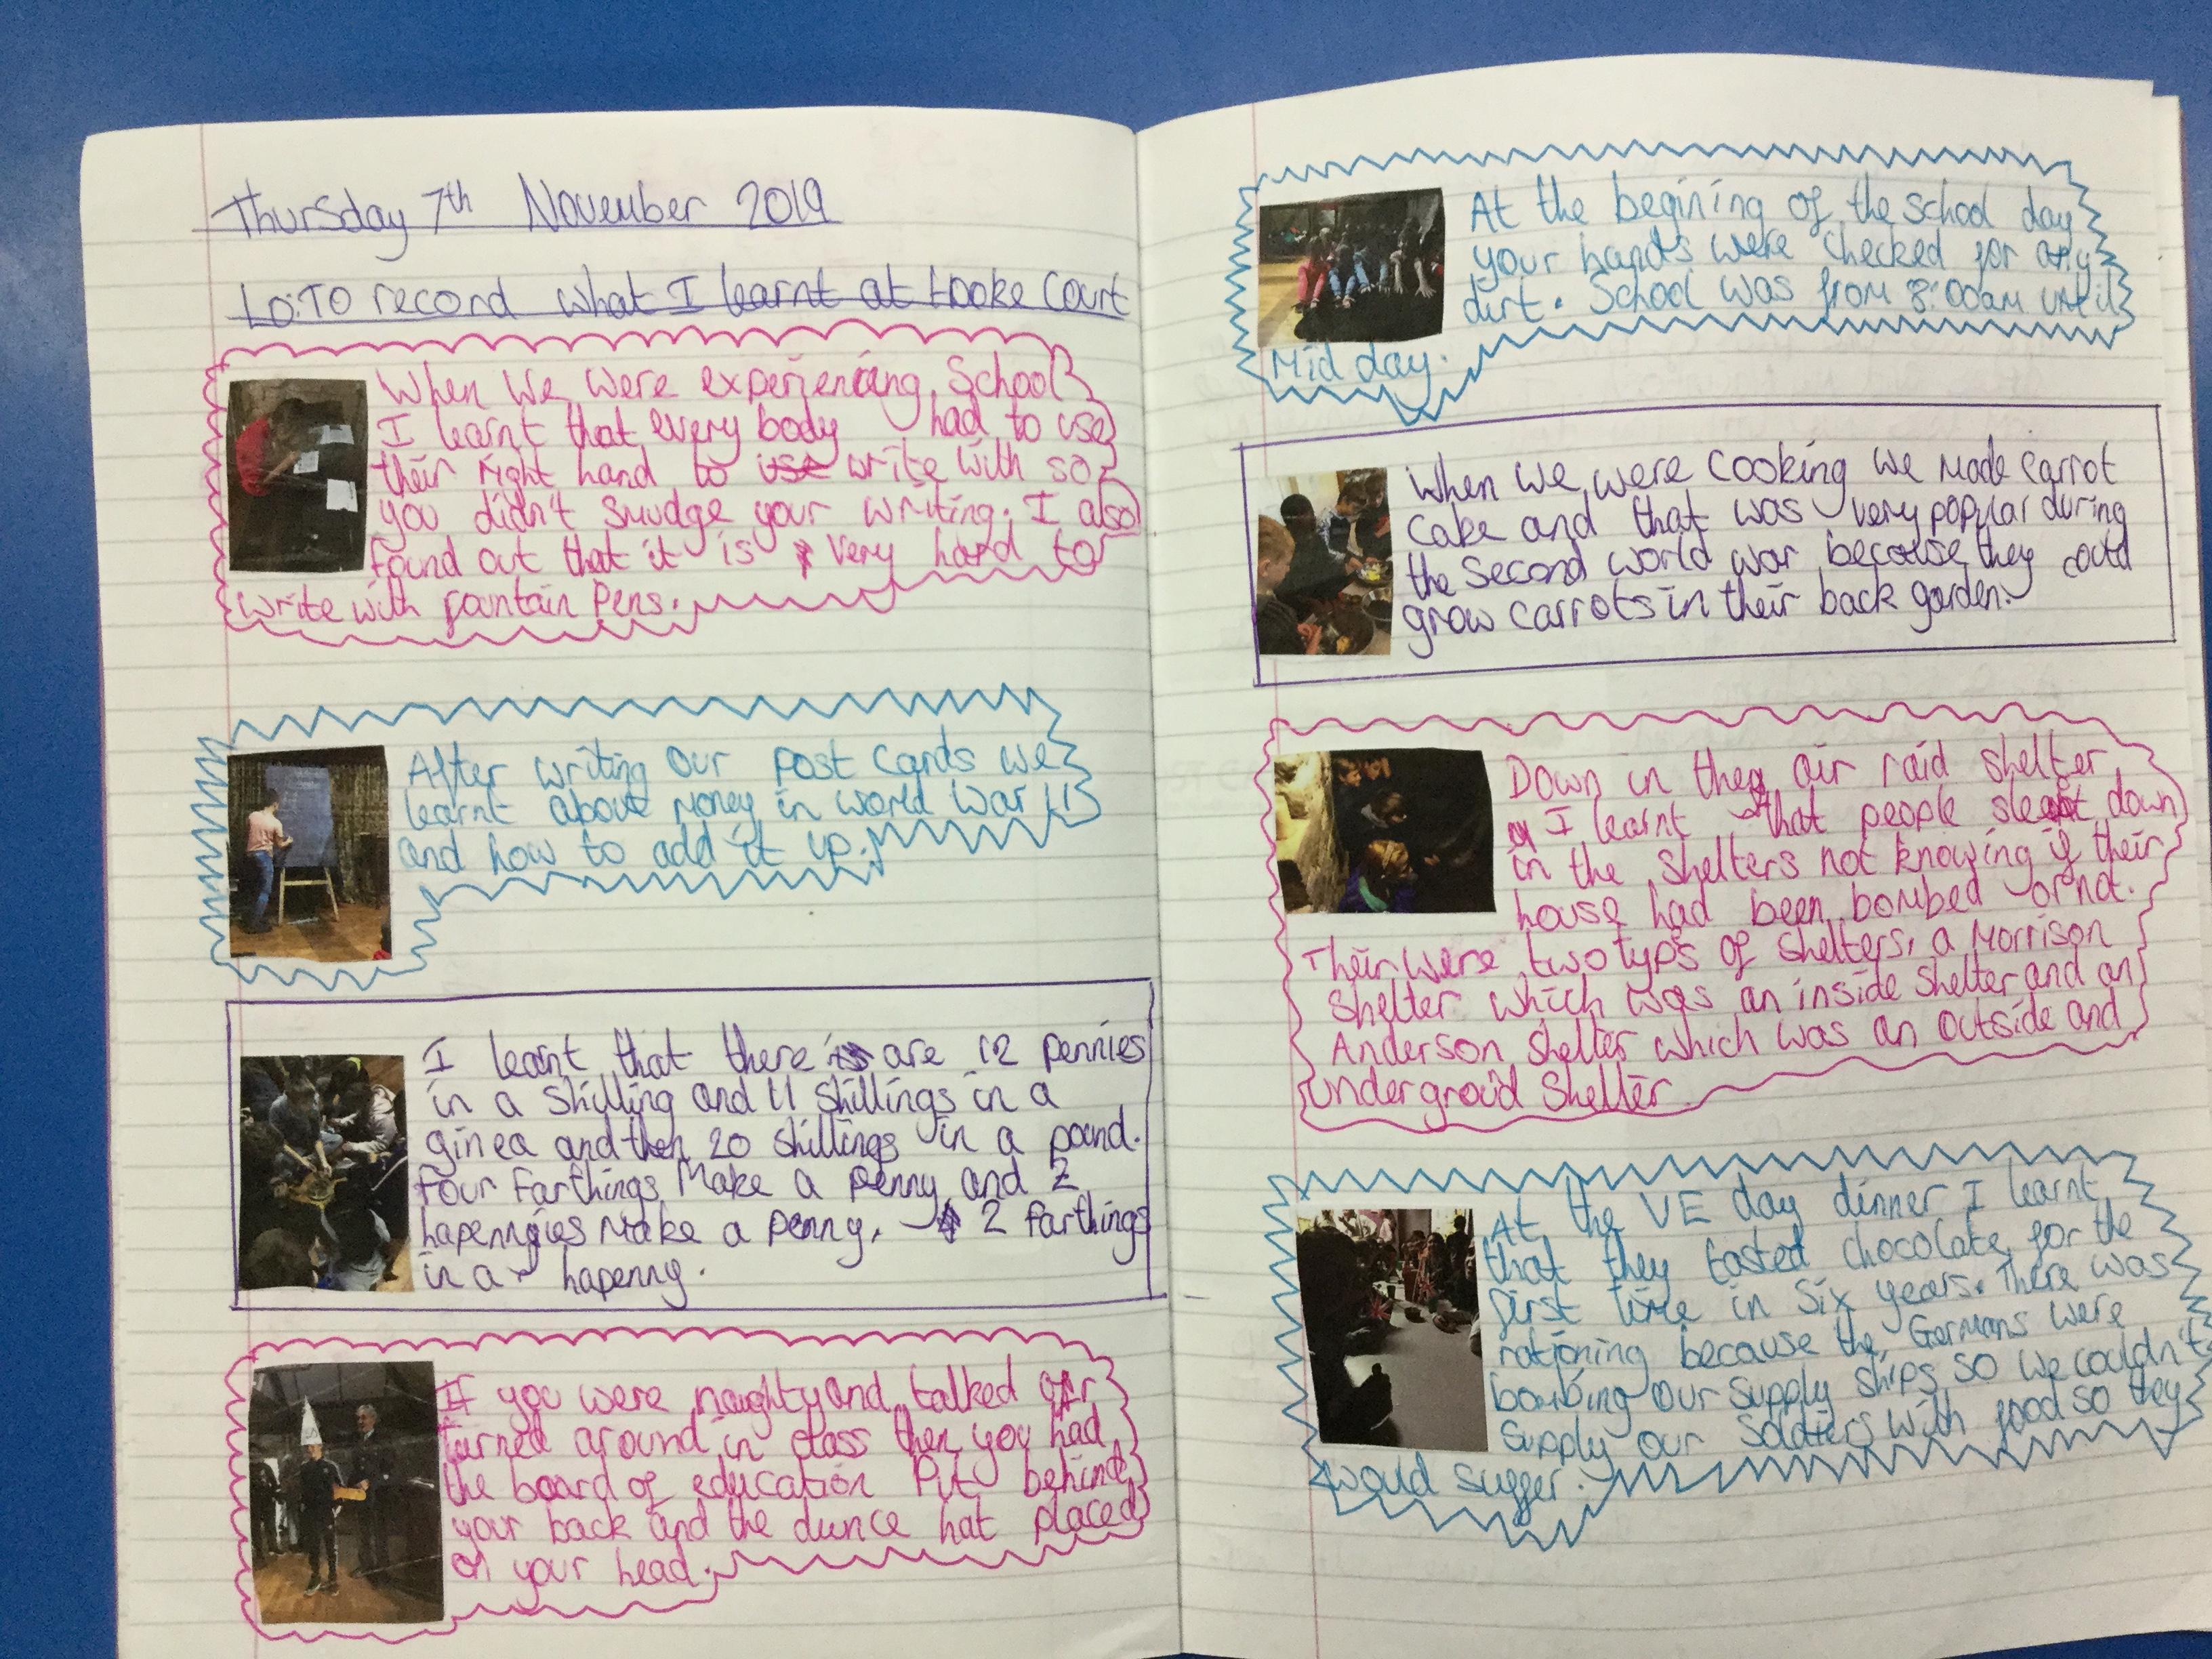 Thursday 7th November 2019
LO:TO record what I learnt at Hooke Court
When we were experiencing School
I learnt that every body had to use
their right hand to use write with so
you didn't smudge your writing. I also
found out that it is very hard to
write with fountain pens.
After writing our post cards we
learnt about money in world war 11
and how to add it up.
I learnt that there is are 12 pennies
in a shilling and 11 shillings in a
ginea and then 20 shillings in a pound.
Four farthings Make a penny and 2
hapennyies Make a penny. 2 farthings
in a hapenny.
If you were naughty and talked or
turned around in class then you had
the board of education Put behind
your back and the dunce hat placed
on your head.
At the begining of the school day
your hands were checked for any
dirt. School was from 8:00am until
Mid day.
When we were cooking we made carrot
cake and that was very popular during
the second world war because they could
grow carrots in their back garden.
Down in the air raid shelter
I learnt that people slept down
in the shelters not knowing if their
house had been bombed or not.
Their were two typs of shelters, a Morrison
shelter which was an inside shelter and an
Anderson shelter which was an outside and
undergroud shelter.
At the VE day dinner I learnt
that they tasted chocolate for the
first time in six years. There was
rationing because the Germans were
bombing our supply ships so we couldn't
supply our soldiers with food so they
would suffer.